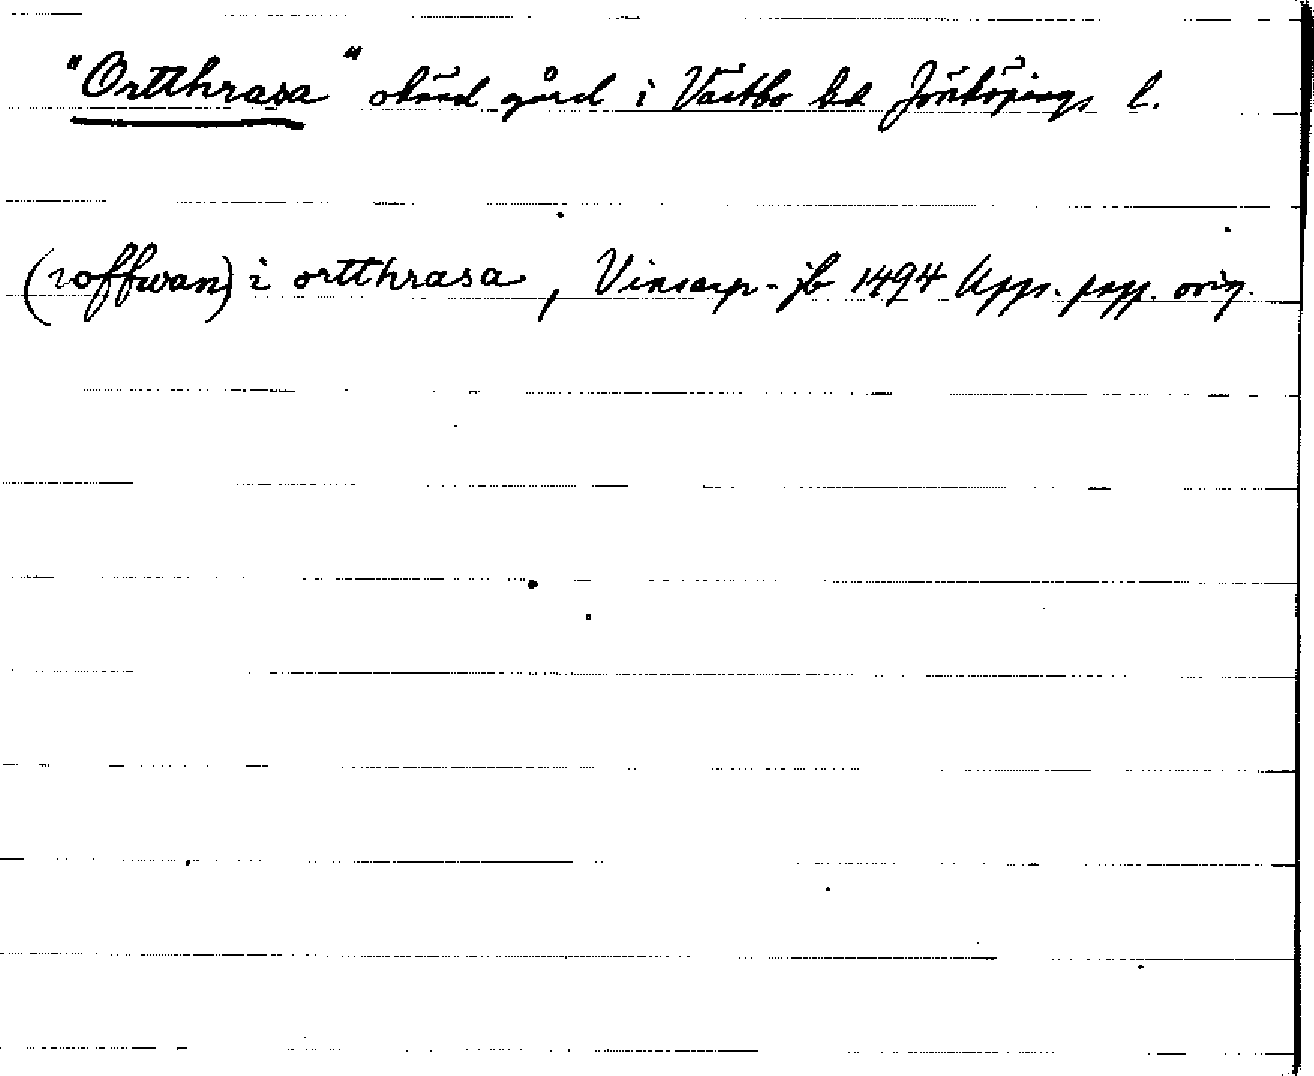 "Ortthrasa" okänd gård i Västbo hd Jönköpings l.
(roffwan) i ortthrasa, Vinsarp-jb 1494 Upps. papp. orig.